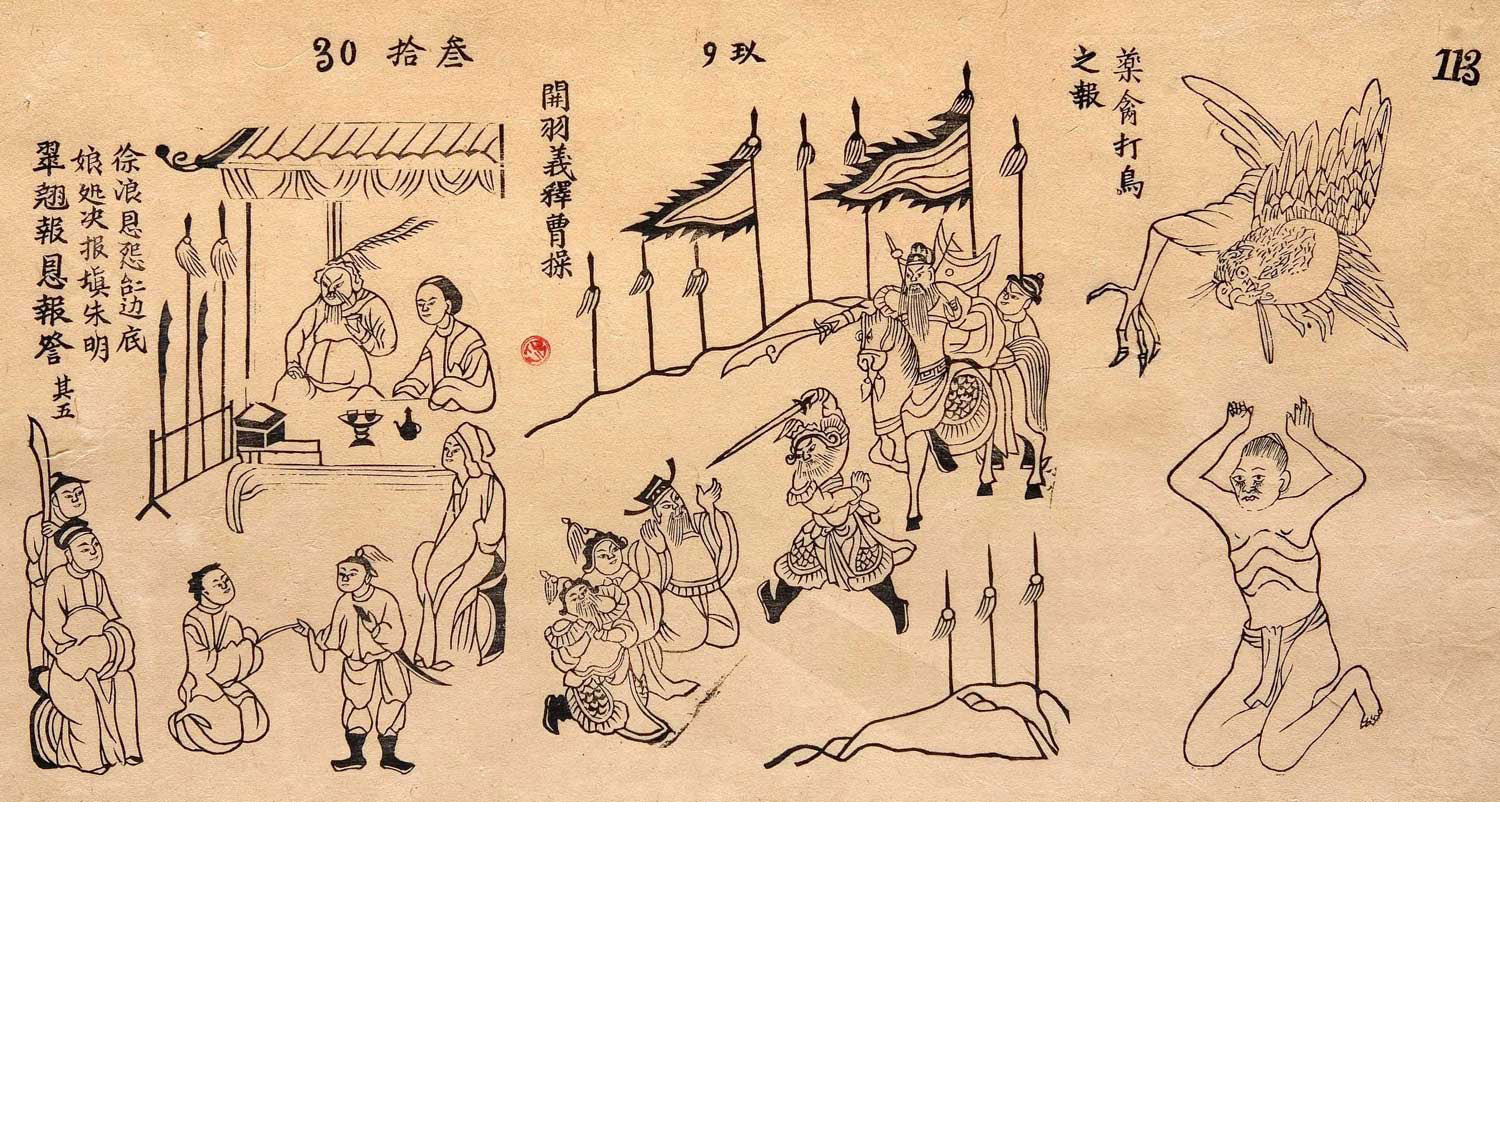 113
藥禽打鳥
之報
9 玖
開羽義釋曹操
30 拾叁
徐浪恩怨𠄩边底
娘処决报塡朱明
翠翹報恩報答
其五